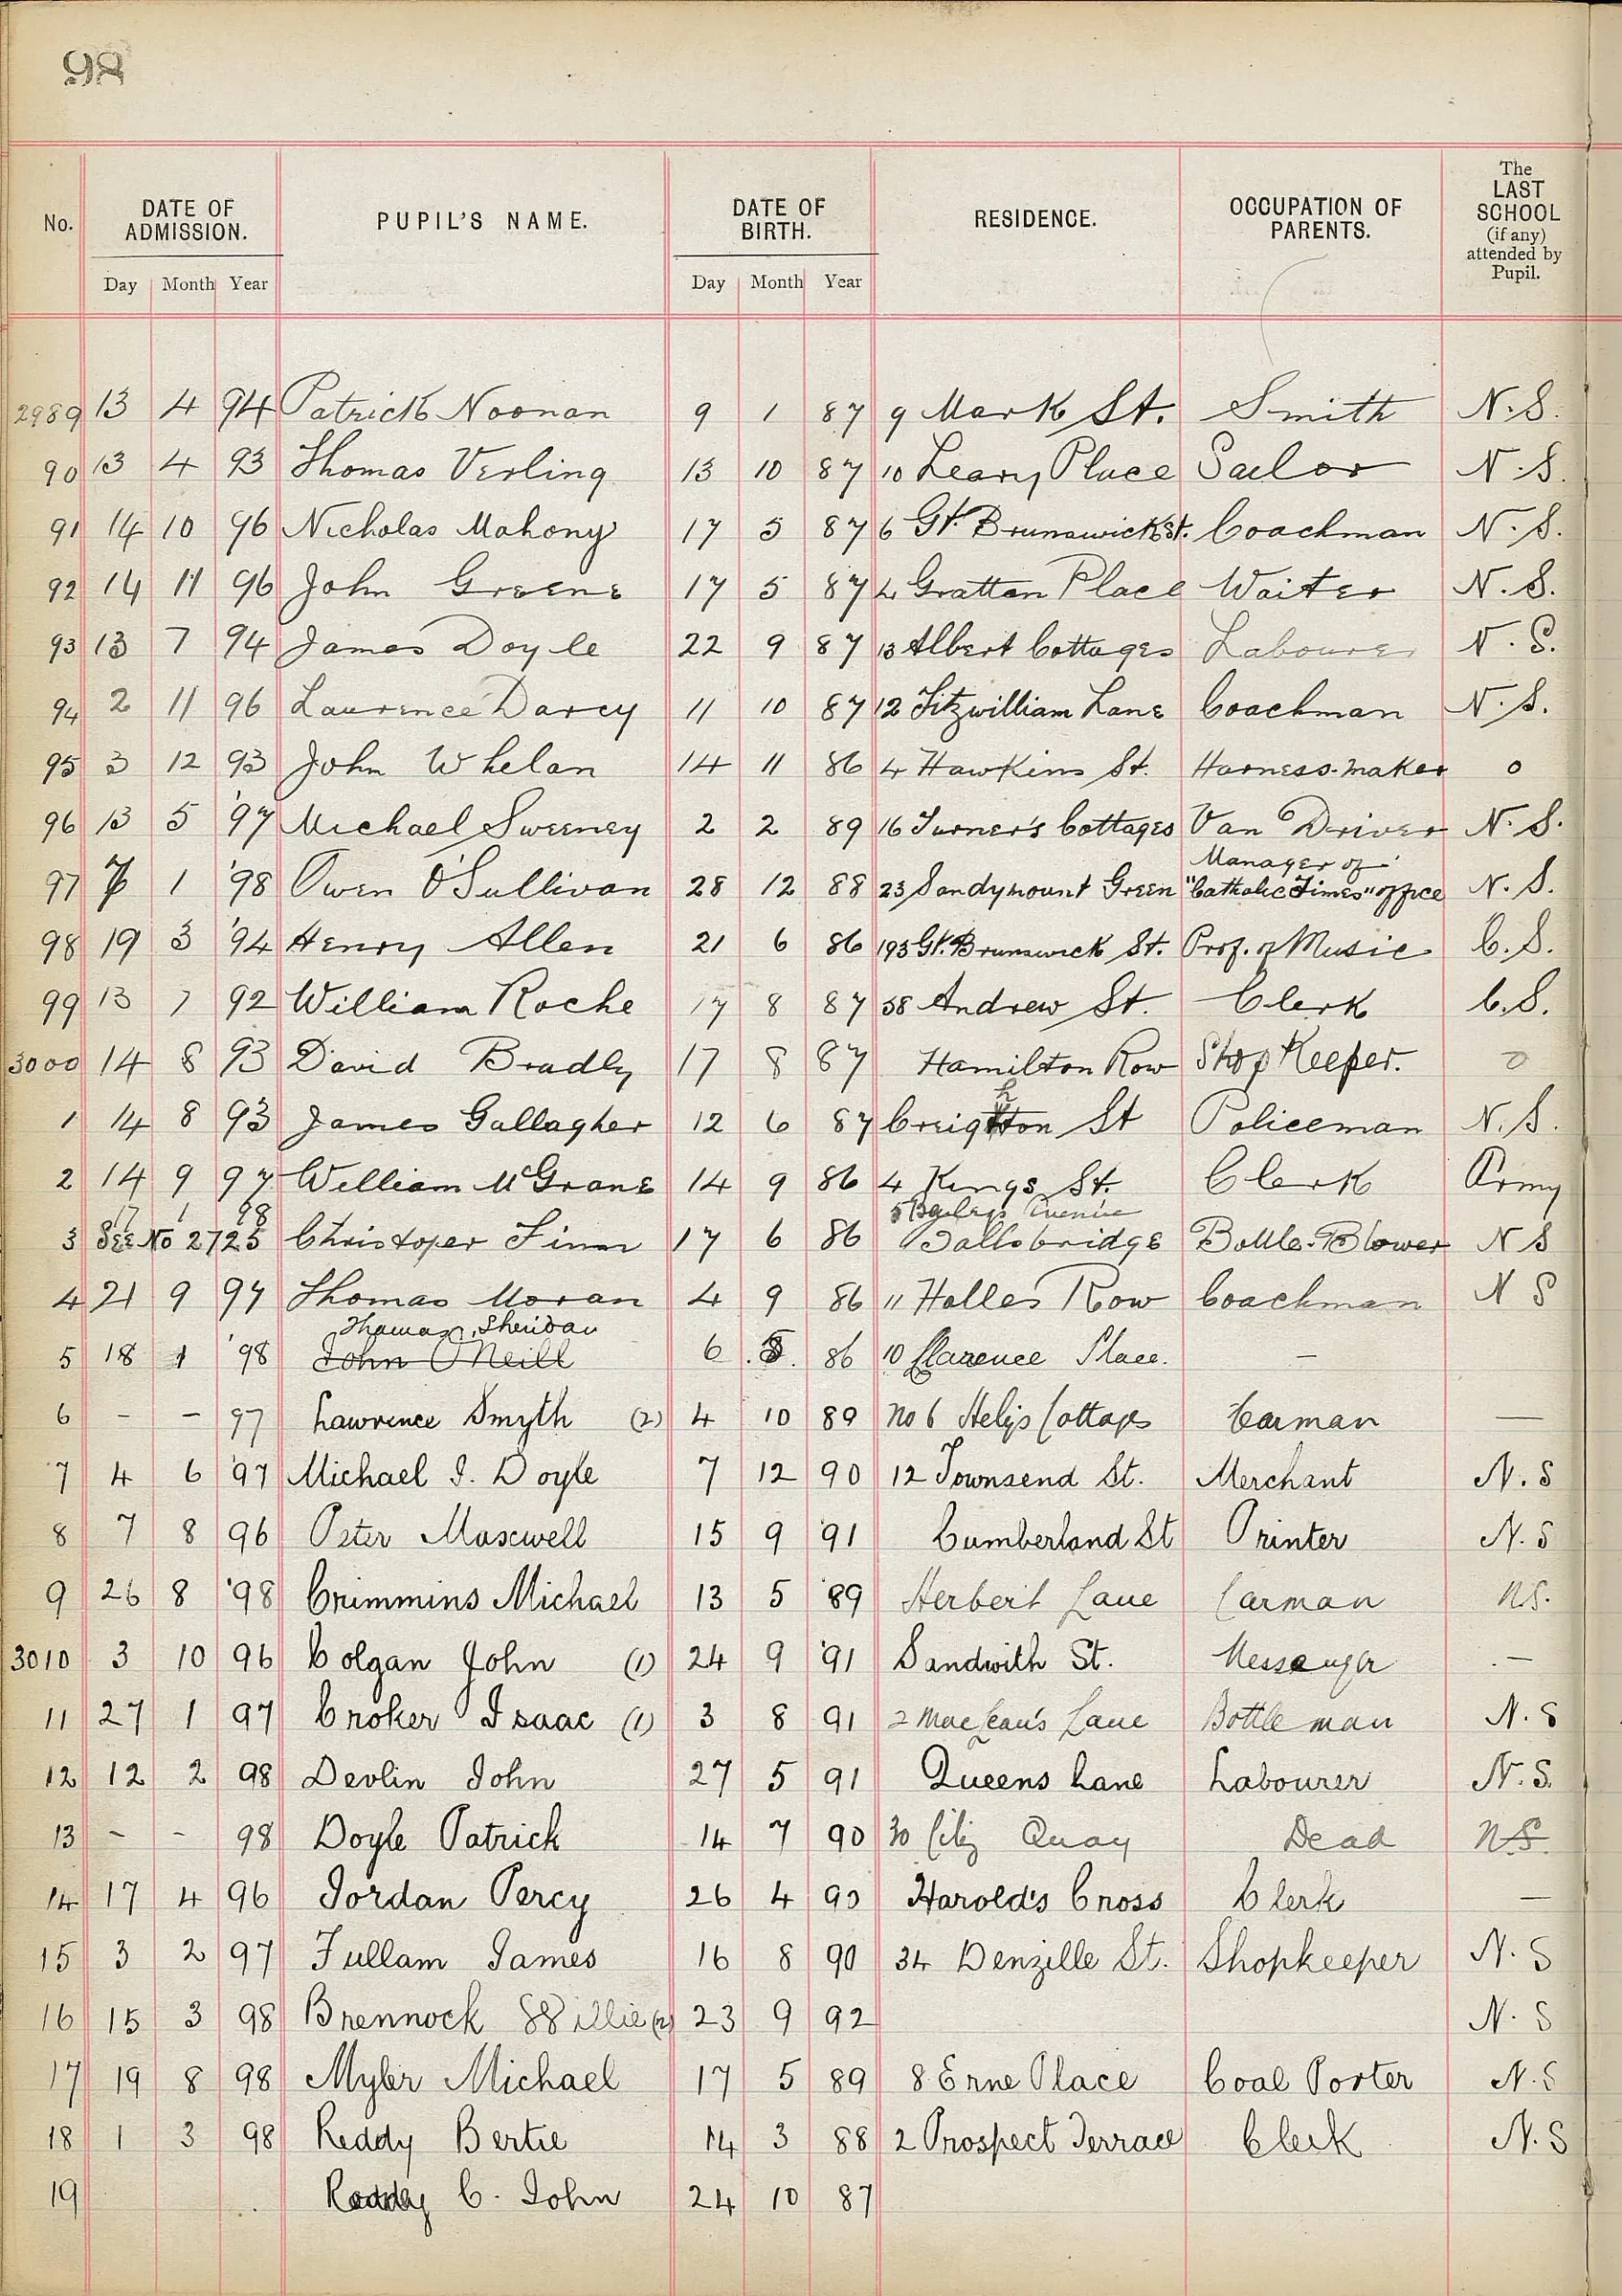 98
No. DATE OF ADMISSION. PUPIL'S NAME. DATE OF BIRTH. RESIDENCE. OCCUPATION OF PARENTS. The LAST SCHOOL (if any) attended by Pupil.
Day Month Year Day Month Year
2989 13 4 94 Patrick Noonan 9 1 87 9 Mark St. Smith N.S.
90 13 4 93 Thomas Verling 13 10 87 10 Leary Place Sailor N.S.
91 14 10 96 Nicholas Mahony 17 5 87 6 Gt. Brunswick St. Coachman N.S.
92 14 11 96 John Greene 17 5 87 4 Grattan Place Waiter N.S.
93 13 7 94 James Doyle 22 9 87 13 Albert Cottages Labourer N.S.
94 2 11 96 Laurence Darcy 11 10 87 12 Fitzwilliam Lane Coachman N.S.
95 3 12 93 John Whelan 14 11 86 4 Hawkins St. Harness-maker o
96 13 5 '97 Michael Sweeney 2 2 89 16 Turner's Cottages Van Driver N.S.
Manager of
97 7 1 '98 Owen O'Sullivan 28 12 88 23 Sandymount Green "Catholic Times" office N.S.
98 19 3 '94 Henry Allen 21 6 86 193 Gt. Brunswick St. Prof. of Music C.S.
99 13 7 92 William Roche 17 8 87 38 Andrew St. Clerk C.S.
3000 14 8 93 David Bradly 17 8 87 Hamilton Row Shop Keeper. o
1 14 8 93 James Gallagher 12 6 87 Creighton St Policeman N.S.
2 14 9 97 William McGrane 14 9 86 4 Kings St. Clerk Army
17 1 98 5 Avenue
3 See No 2725 Christoper Finn 17 6 86 Ballsbridge Bottle-Blower N S
4 21 9 97 Thomas Moran 4 9 86 11 Holles Row Coachman N S
Thomas Sheridan
5 18 1 '98 John O'Neill 6 86 10 Clarence Place. —
6 - - 97 Lawrence Smyth (2) 4 10 89 No 6 Hely's Cottages Carman —
7 4 6 '97 Michael J. Doyle 7 12 90 12 Townsend St. Merchant N.S
8 7 8 96 Peter Maxwell 15 9 '91 Cumberland St Printer N.S
9 26 8 '98 Crimmins Michael 13 5 '89 Herbert Lane Carman N.S.
3010 3 10 96 Colgan John (1) 24 9 '91 Sandwith St. Messenger —
11 27 1 97 Croker Isaac (1) 3 8 91 2 MacLean's Lane Bottle man N.S
12 12 2 98 Devlin John 27 5 91 Queens Lane Labourer N.S.
13 - - 98 Doyle Patrick 14 7 90 30 City Quay Dead N.S.
14 17 4 96 Jordan Percy 26 4 90 Harold's Cross Clerk —
15 3 2 97 Fullam James 16 8 90 34 Denzille St. Shopkeeper N.S
16 15 3 98 Brennock Willie (2) 23 9 92 N.S
17 19 8 98 Myler Michael 17 5 89 8 Erne Place Coal Porter N.S
18 1 3 98 Reddy Bertie 14 3 88 2 Prospect Terrace Clerk N.S
19 Reddy C. John 24 10 87